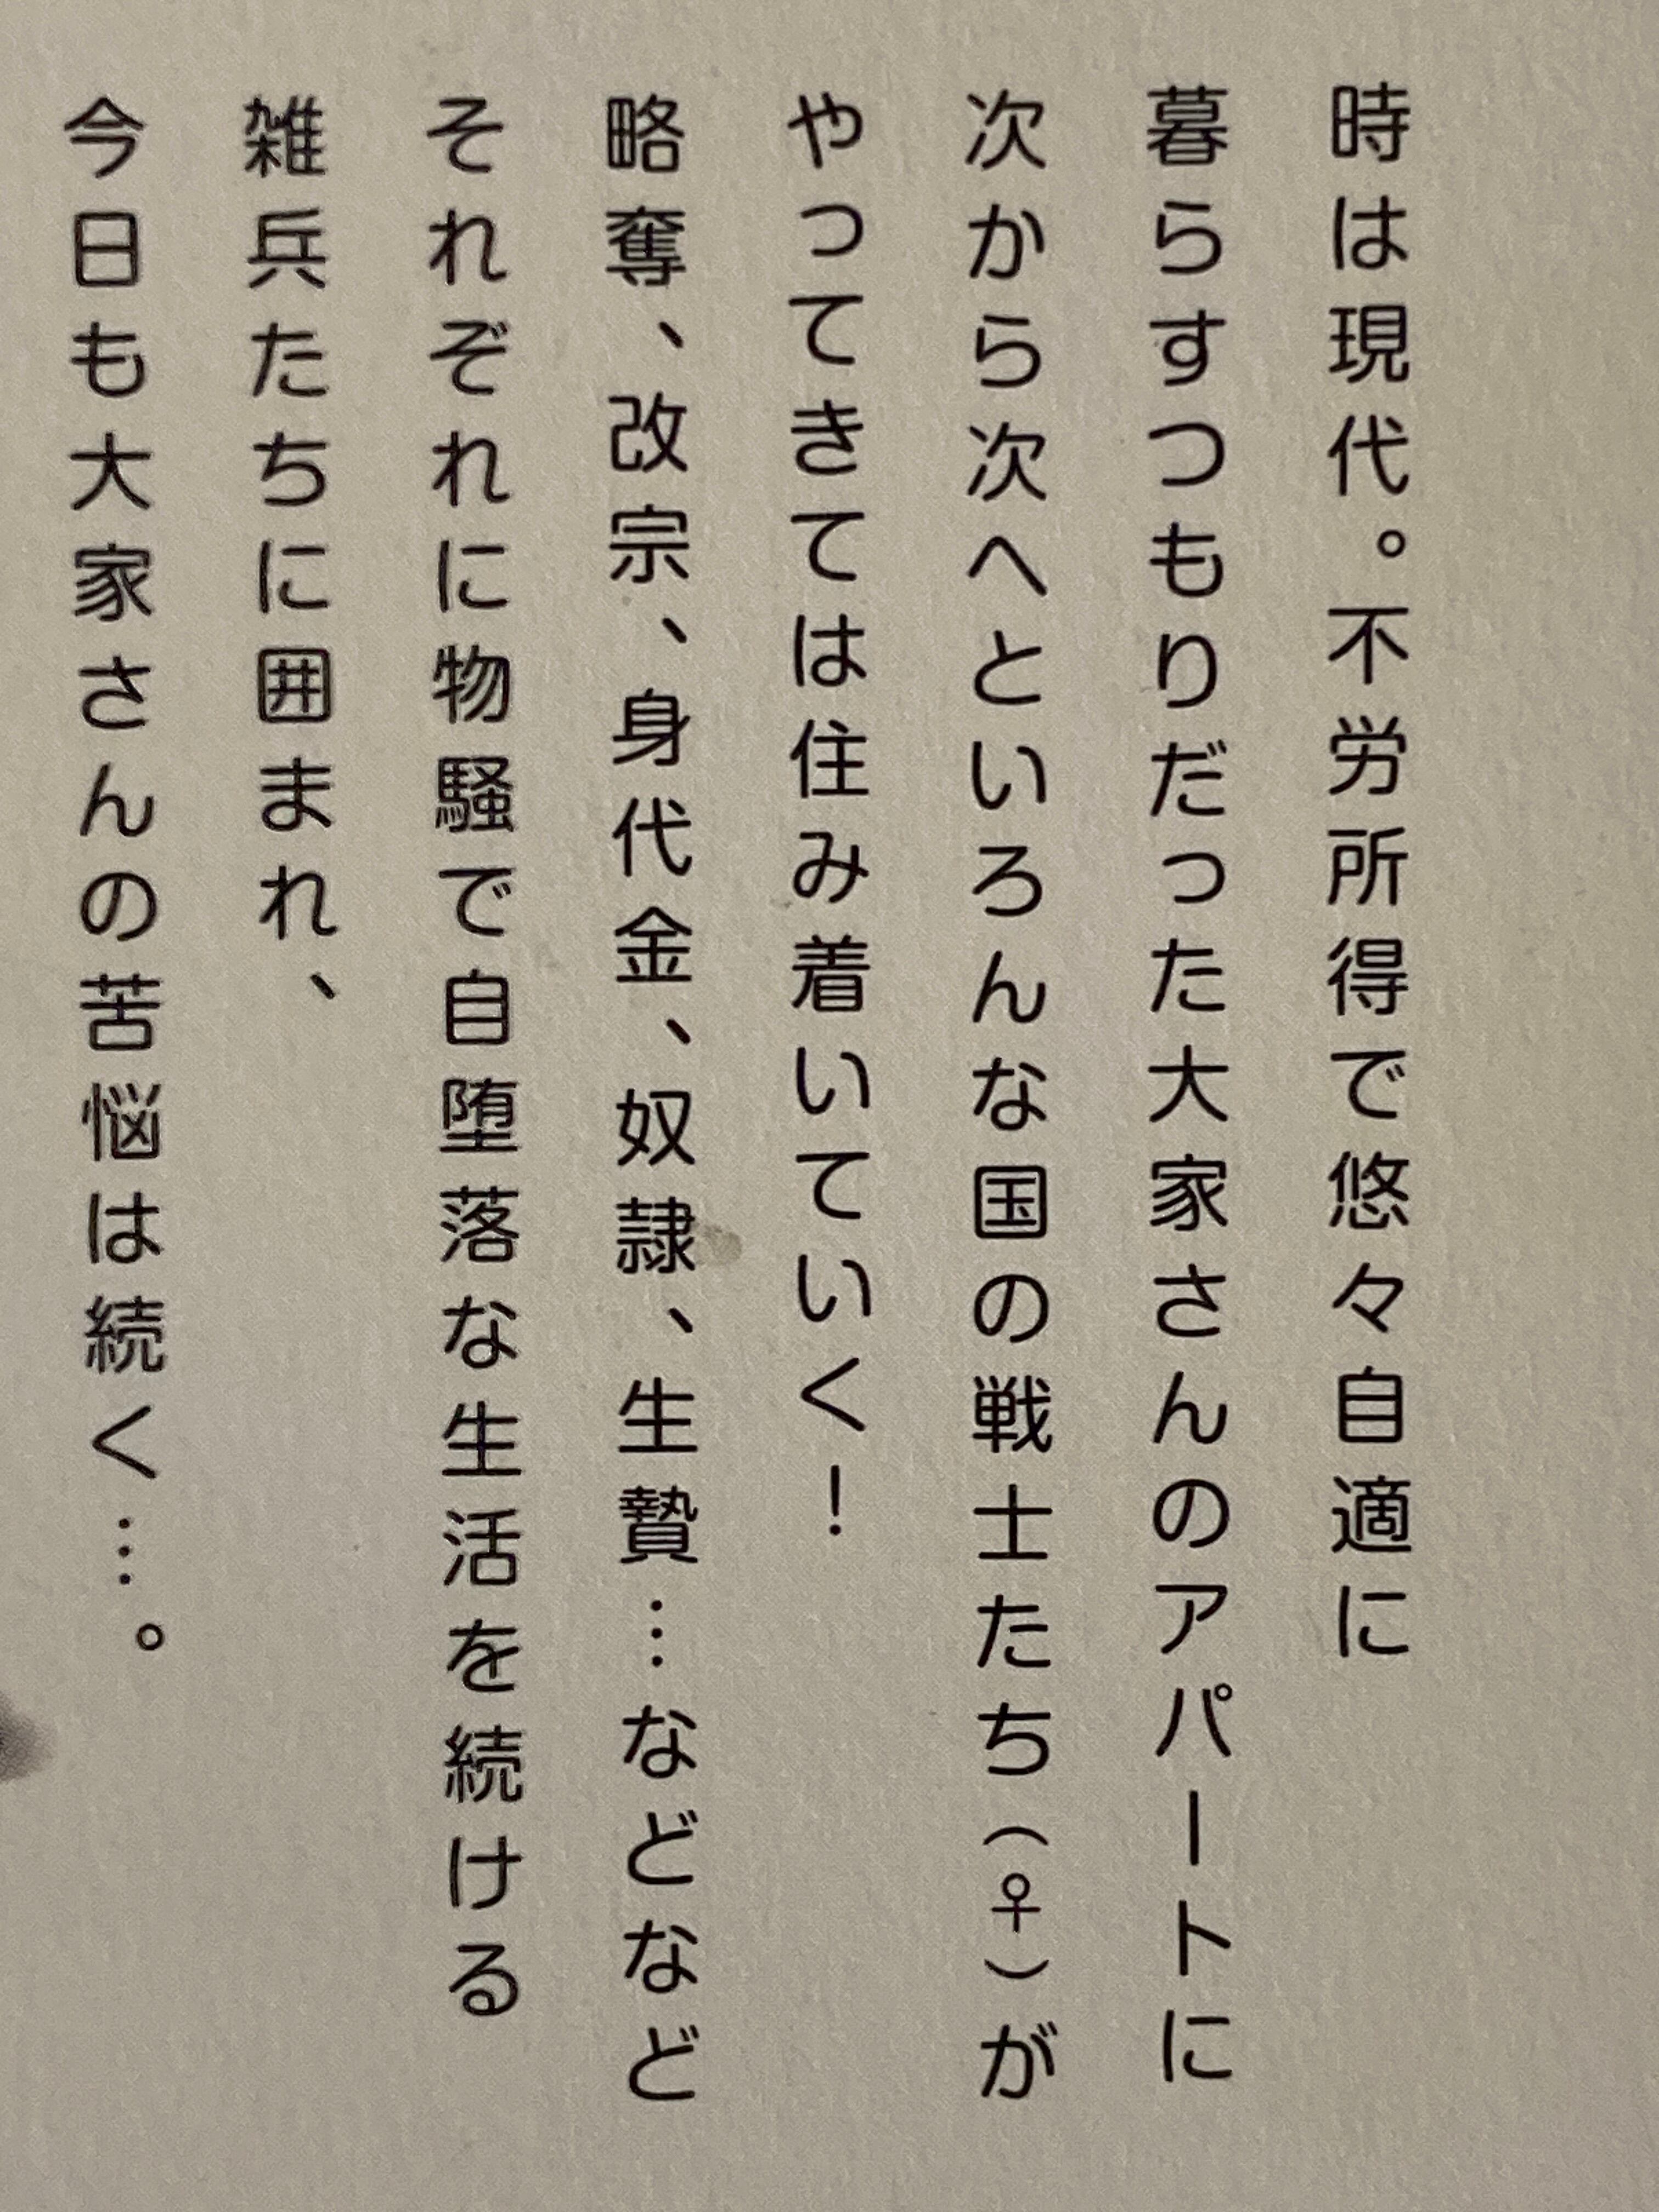 時は現代。不労所得で悠々自適に
暮らすつもりだった大家さんのアパートに
次から次へといろんな国の戦士たち（♀）が
やってきては住み着いていく！
略奪、改宗、身代金、奴隷、生贄…などなど
それぞれに物騒で自堕落な生活を続ける
雑兵たちに囲まれ、
今日も大家さんの苦悩は続く…。